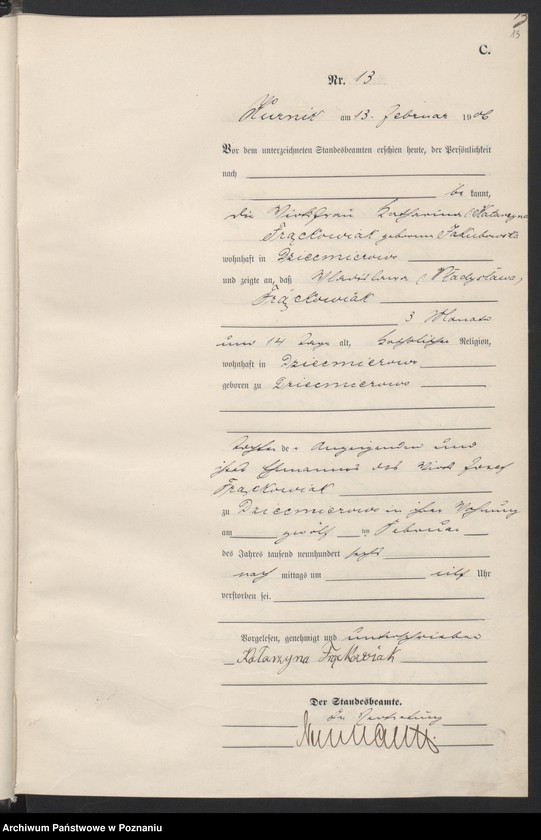 13
C.
Nr. 13
Kurnik am 13. Februar 1906
Vor dem unterzeichneten Standesbeamten erschien heute, der Persönlichkeit
nach
be kannt,
die Wirthfrau Katharina (Katarzyna
Frąckowiak geborene Jakubowska
wohnhaft in Dziecmierowo
und zeigte an, daß Wladislawa (Władysława)
Frąckowiak
3 Monate
und 14 Tage alt, katholischer Religion,
wohnhaft in Dziecmierowo
geboren zu Dziecmierowo
Tochter der Anzeigenden und
ihres Ehemannes des Wirth Josef
Frąckowiak
zu Dziecmierowo in ihrer Wohnung
am zwölf ten Februar
des Jahres tausend neunhundert sechs
nach mittags um elf Uhr
verstorben sei.
Vorgelesen, genehmigt und unterschrieben
Katarzyna Frąckowiak
Der Standesbeamte.
In Vertretung